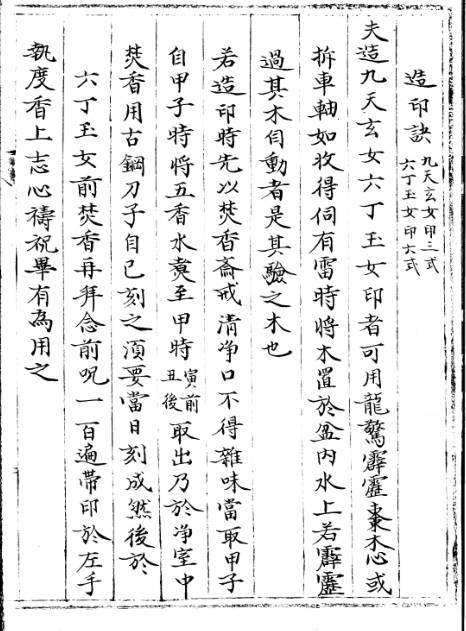 造印訣 九天玄女印三式 六丁玉女印六式
夫造九天玄女六丁玉女印者可用龍驚霹靂棗木心或
拆車軸如收得伺有雷時將木置於盆內水上若霹靂
過其木自動者是其驗之木也
若造印時先以焚香齋戒清净口不得雜味當取甲子
自甲子時將五香水煑至甲時 寅前丑後 取出乃於净室中
焚香用古鋼刀子自己刻之湏要當日刻成然後於
六丁玉女前焚香再拜念前呪一百遍帶印於左手
執度香上志心禱祝畢有為用之